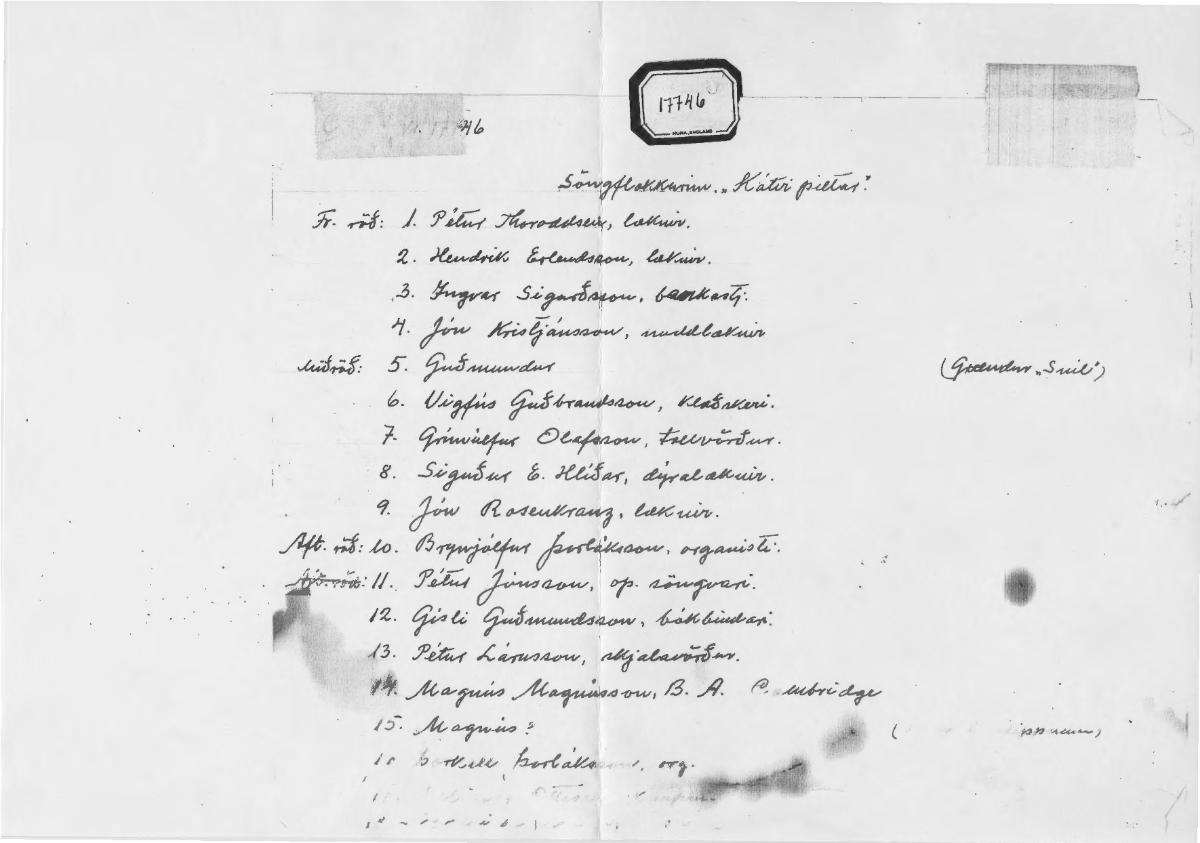 17746
HUMA, ENGLAND
46
Söngflokkurinn „Kátir piltar".
Fr. röð: 1. Pétur Thoroddsen, læknir.
2. Hendrik Erlendsson, læknir.
3. Ingvar Sigurðsson, bankastj.
4. Jón Kristjánsson, nuddlæknir
Miðröð: 5. Guðmundur (Gvendur „Snil")
6. Vigfús Guðbrandsson, klæðskeri.
7. Grímúlfur Olafsson, tollvörður.
8. Siguður E. Hlíðar, dýralæknir.
9. Jón Rosenkranz, læknir.
Aft. röð: 10. Brynjólfur Þorláksson, organisti.
11. Pétur Jónsson, op. söngvari.
12. Gísli Guðmundsson, bókbindari.
13. Pétur Lárusson, skjalavörður.
14. Magnús Magnússon, B. A. C mbridge
15. Magnús?
Þorkell Þorláksson, org.